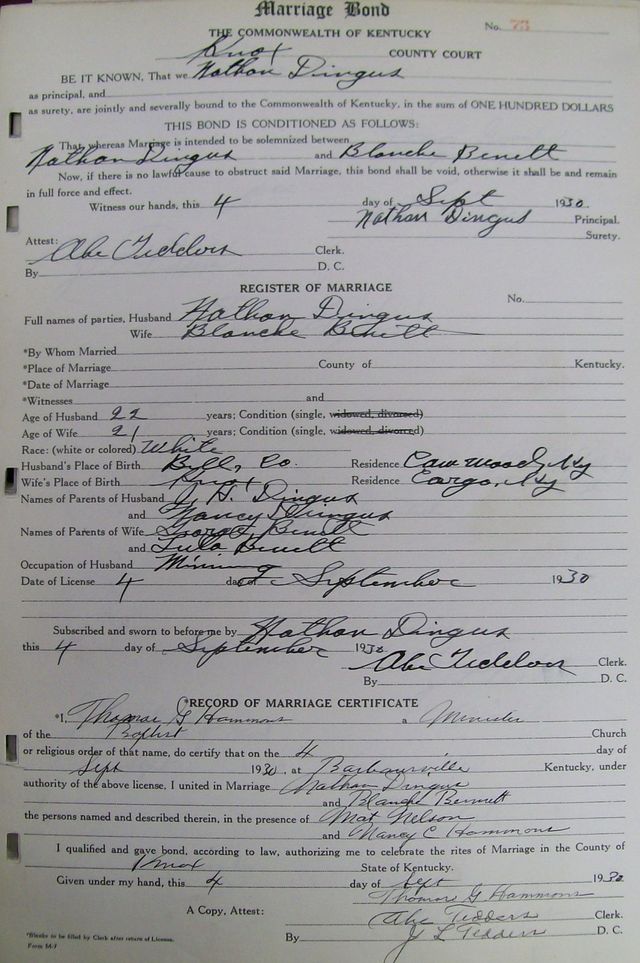 Marriage Bond
No. 73
THE COMMONWEALTH OF KENTUCKY
Knox COUNTY COURT
BE IT KNOWN, That we Nathan Dingus
as principal, and
as surety, are jointly and severally bound to the Commonwealth of Kentucky, in the sum of ONE HUNDRED DOLLARS
THIS BOND IS CONDITIONED AS FOLLOWS:
That, whereas Marriage is intended to be solemnized between
Nathan Dingus and Blanche Benett
Now, if there is no lawful cause to obstruct said Marriage, this bond shall be void, otherwise it shall be and remain
in full force and effect.
Witness our hands, this 4 day of Sept 1930.
Nathan Dingus Principal.
Surety.
Attest:
Abe Tedders Clerk.
By D. C.
REGISTER OF MARRIAGE
No.
Full names of parties, Husband Nathan Dingus
Wife Blanche Benett
*By Whom Married
*Place of Marriage County of Kentucky.
*Date of Marriage
*Witnesses and
Age of Husband 22 years; Condition (single, widowed, divorced)
Age of Wife 21 years; Condition (single, widowed, divorced)
Race: (white or colored) White
Husband's Place of Birth Bell, Co. Residence Cawwood, Ky
Wife's Place of Birth Knox Residence Cargo, Ky
Names of Parents of Husband Dingus
and Nancy Dingus
Names of Parents of Wife George Benett
and Lula Benett
Occupation of Husband Mining
Date of License 4 day of September 1930
Subscribed and sworn to before me by Nathan Dingus
this 4 day of September 1930
Abe Tedders Clerk.
By D. C.
*RECORD OF MARRIAGE CERTIFICATE
*I, Thomas G Hammons a Minister
of the Baptist Church
or religious order of that name, do certify that on the 4 day of
Sept 1930, at Barbourville Kentucky, under
authority of the above license, I united in Marriage Nathan Dingus
and Blanche Bennett
the persons named and described therein, in the presence of Mat Nelson
and Nancy C Hammons
I qualified and gave bond, according to law, authorizing me to celebrate the rites of Marriage in the County of
Knox State of Kentucky.
Given under my hand, this 4 day of Sept 1930
Thomas G Hammons
A Copy, Attest: Abe Tedders Clerk.
By J L Tedders D. C.
*Blanks to be filled by Clerk after return of License.
Form M-7